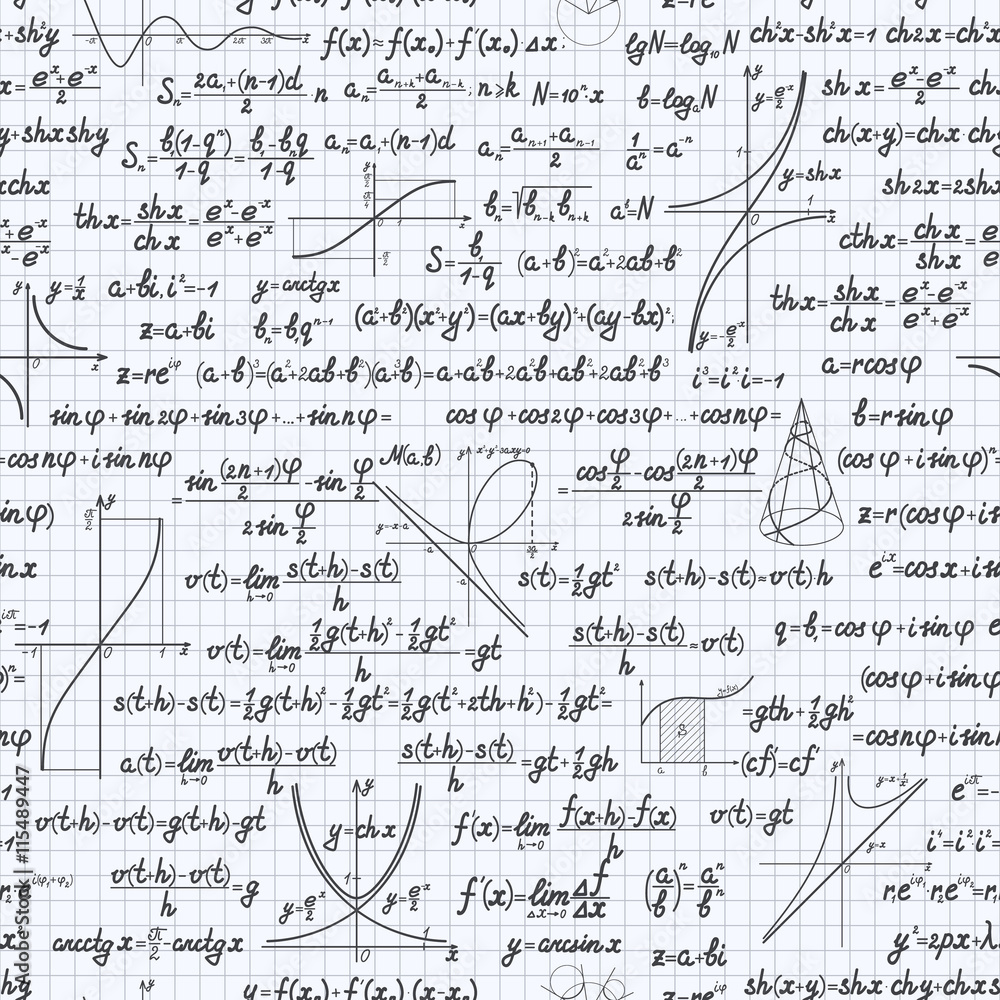 +sh²y
f(x)≈f(x₀)+f'(x₀)·Δx;
lgN=log₁₀N
ch²x-sh²x=1
ch2x=ch²x
x=(eˣ+e⁻ˣ)/2
Sₙ=(2a₁+(n-1)d)/2·n
aₙ=(aₙ₊ₖ+aₙ₋ₖ)/2; n≥k
N=10ⁿ·x
b=logₐN
y=eˣ/2
sh x=(eˣ-e⁻ˣ)/2
y+shxshy
Sₙ=b₁(1-qⁿ)/(1-q)=(b₁-bₙq)/(1-q)
aₙ=a₁+(n-1)d
aₙ=(aₙ₊₁+aₙ₋₁)/2
1/aⁿ=a⁻ⁿ
ch(x+y)=chx·chy
y=shx
xchx
sh2x=2shx
thx=shx/chx=(eˣ-e⁻ˣ)/(eˣ+e⁻ˣ)
bₙ=√(bₙ₋ₖbₙ₊ₖ)
aᵇ=N
S=b₁/(1-q)
(a+b)²=a²+2ab+b²
cthx=chx/shx=
y=1/x
a+bi, i²=-1
y=arctgx
thx=shx/chx=(eˣ-e⁻ˣ)/(eˣ+e⁻ˣ)
z=a+bi
bₙ=b₁qⁿ⁻¹
(a²+b²)(x²+y²)=(ax+by)²+(ay-bx)²;
y=-e⁻ˣ/2
z=re^(iφ)
(a+b)³=(a²+2ab+b²)(a+b)=a³+a²b+2a²b+ab²+2ab²+b³
i³=i²·i=-i
a=rcosφ
sinφ+sin2φ+sin3φ+...+sinnφ=
cosφ+cos2φ+cos3φ+...+cosnφ=
b=rsinφ
=cosnφ+isinnφ
=(sin((2n+1)φ/2)-sin(φ/2))/(2sin(φ/2))
M(a,b)
x³+y³-3axy=0
=(cos(φ/2)-cos((2n+1)φ/2))/(2sin(φ/2))
(cosφ+isinφ)ⁿ=
inφ)
y=-x-a
z=r(cosφ+i
inx
v(t)=lim h→0 (s(t+h)-s(t))/h
s(t)=½gt²
s(t+h)-s(t)≈v(t)·h
eⁱˣ=cosx+i
=-1
v(t)=lim h→0 (½g(t+h)²-½gt²)/h=gt
(s(t+h)-s(t))/h≈v(t)
q=b₁=cosφ+isinφ
s(t+h)-s(t)=½g(t+h)²-½gt²=½g(t²+2th+h²)-½gt²=
y=f(x)
S
a b
=gth+½gh²
(cosφ+isinφ
a(t)=lim h→0 (v(t+h)-v(t))/h
(s(t+h)-s(t))/h=gt+½gh
(cf)'=cf'
=cosnφ+isin
v(t+h)-v(t)=g(t+h)-gt
y=chx
f'(x)=lim h→0 (f(x+h)-f(x))/h
v(t)=gt
y=x+1/x²
y=x
i⁴=i²·i²=
(v(t+h)-v(t))/h=g
y=eˣ/2
y=e⁻ˣ/2
f'(x)=lim Δx→0 Δf/Δx
(a/b)ⁿ=aⁿ/bⁿ
r₁e^(iφ₁)·r₂e^(iφ₂)=r₁
arcctgx=π/2-arctgx
y=arcsinx
z=a+bi
y²=2px+λ
y=f(x₀)+f'(x₀)·(x-x₀)
z=re^(iφ)
sh(x+y)=shx·chy+chx
Adobe Stock | #115489447